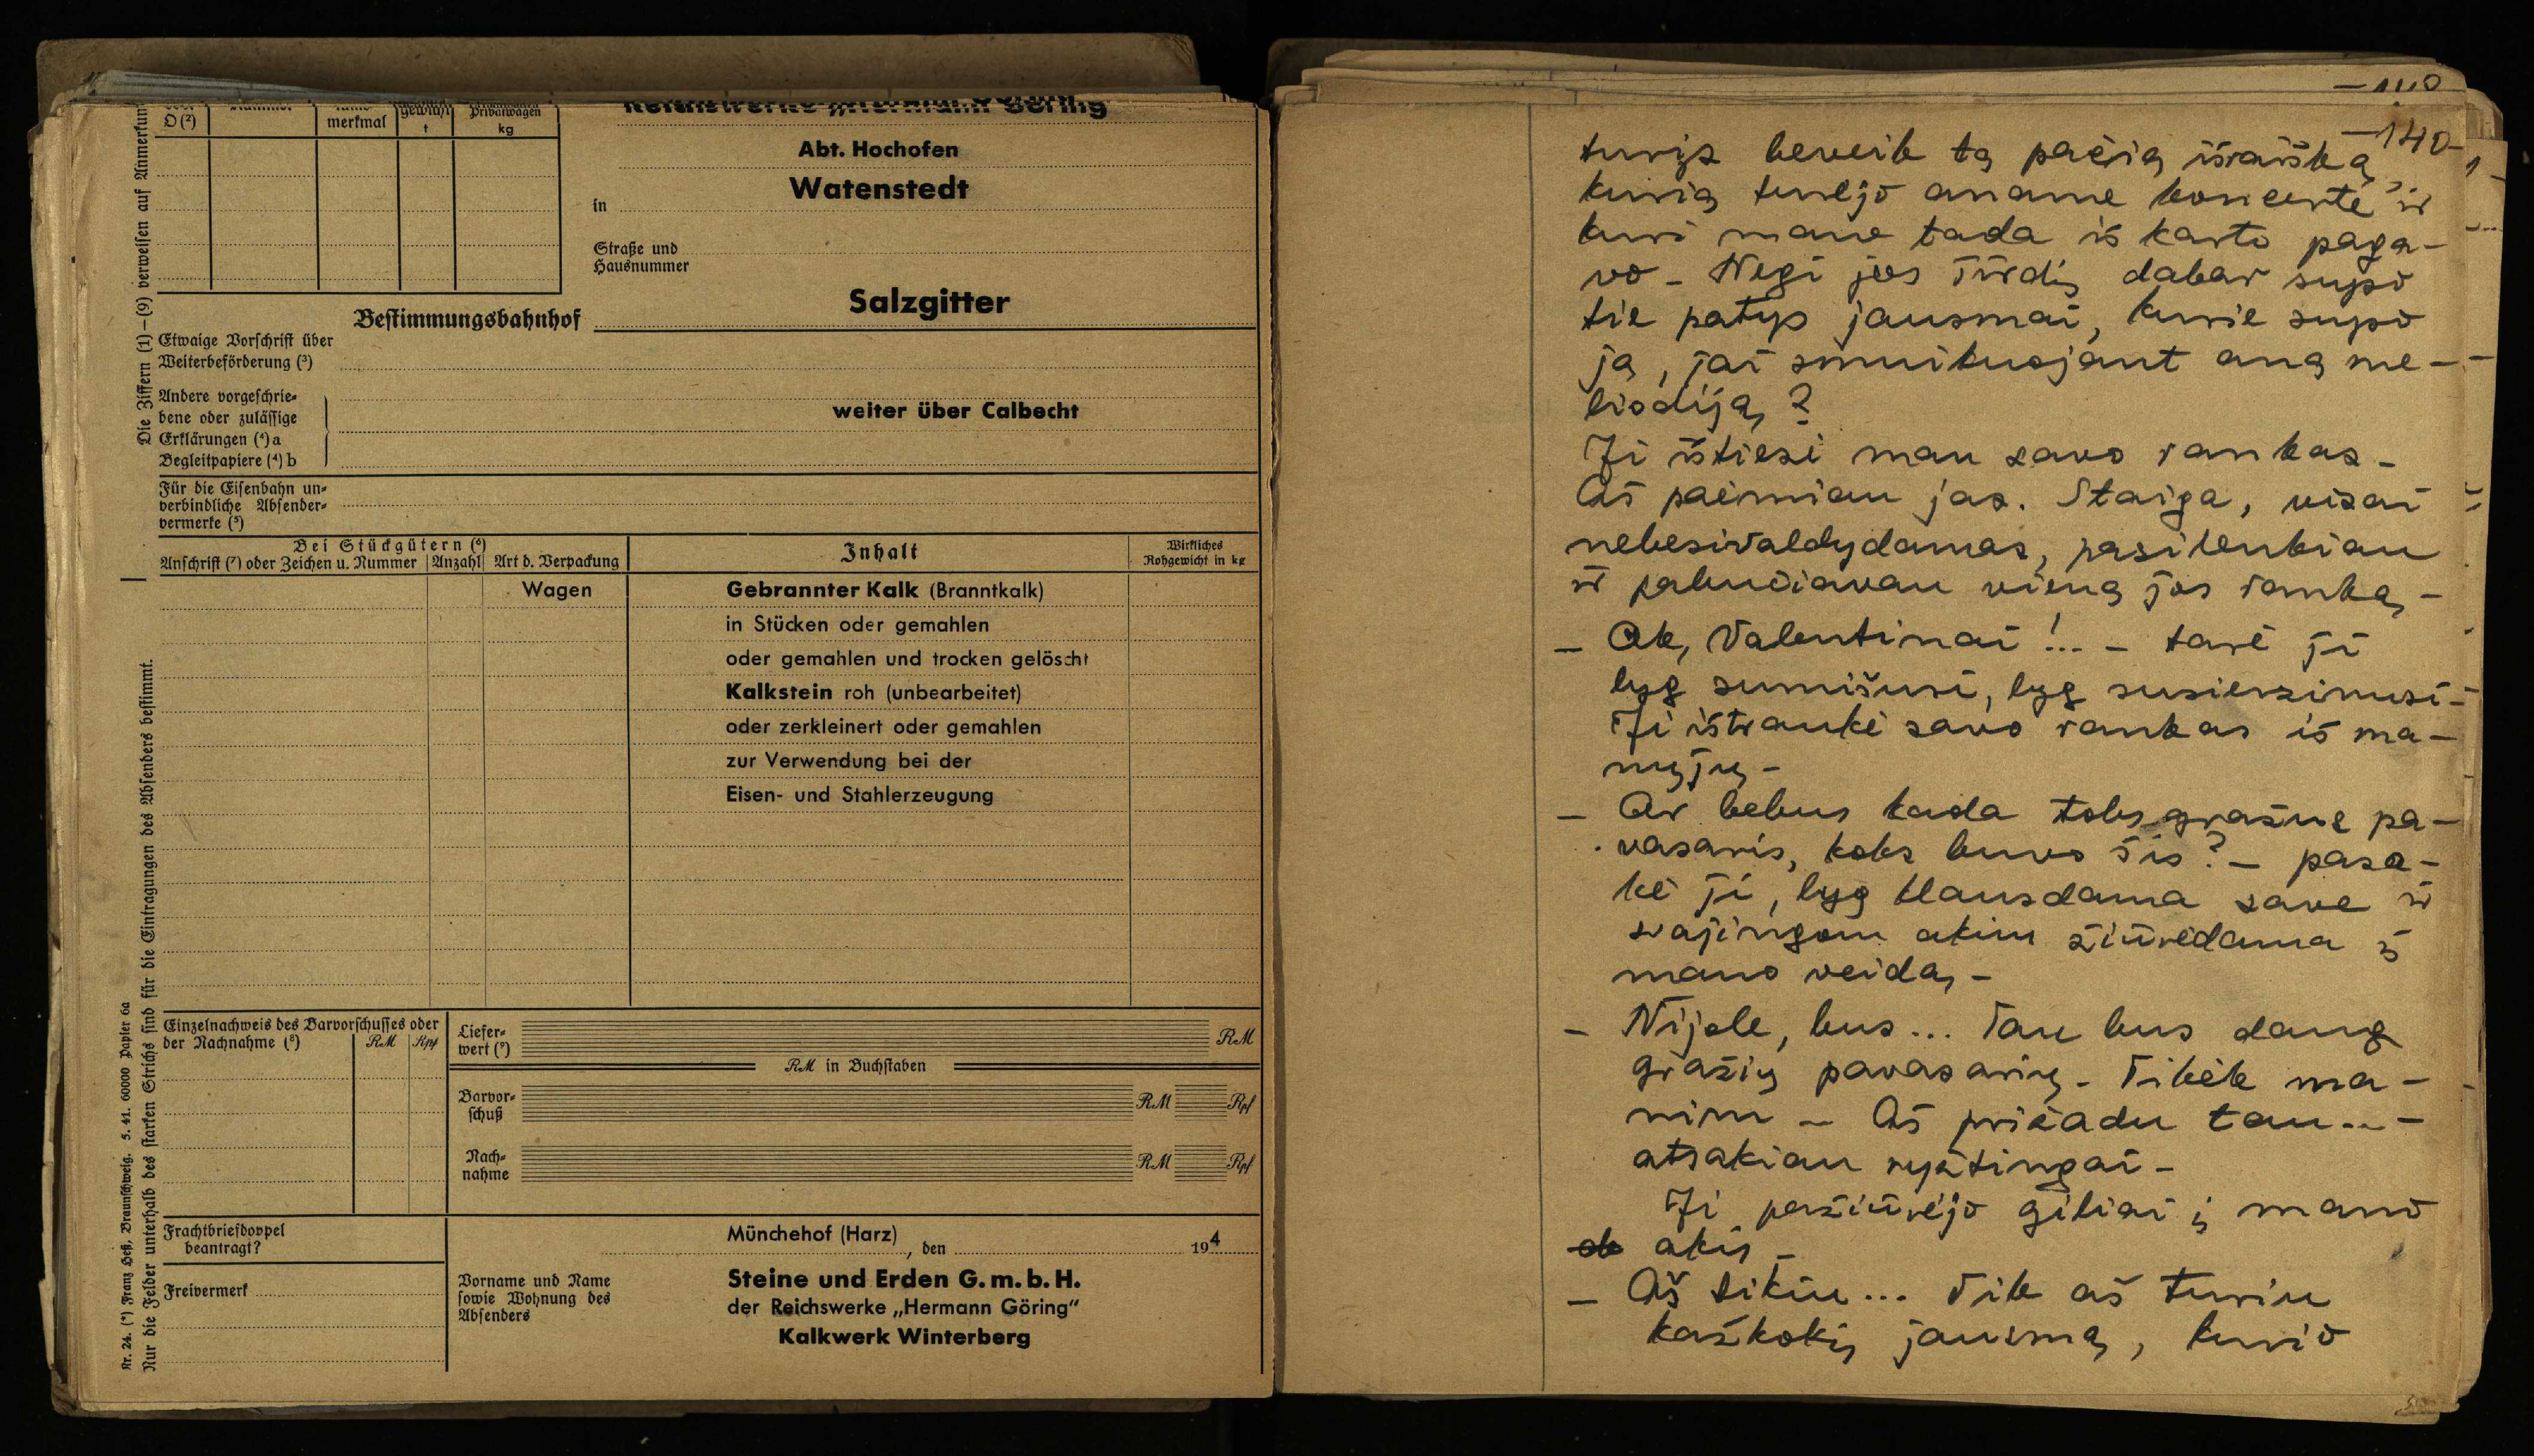 D (²)
merkmal
gewicht
t
Privatwagen
kg
Reichswerke „Hermann Göring
Abt. Hochofen
in Watenstedt
Straße und
Hausnummer
Bestimmungsbahnhof Salzgitter
Etwaige Vorschrift über
Weiterbeförderung (³)
Andere vorgeschrie-
bene oder zulässige
Erklärungen (⁴) a
Begleitpapiere (⁴) b
weiter über Calbecht
Für die Eisenbahn un-
verbindliche Absender-
vermerke (⁵)
Bei Stückgütern (⁶)
Anschrift (⁷) oder Zeichen u. Nummer Anzahl Art d. Verpackung
Inhalt
Wirkliches
Rohgewicht in kg
Wagen Gebrannter Kalk (Branntkalk)
in Stücken oder gemahlen
oder gemahlen und trocken gelöscht
Kalkstein roh (unbearbeitet)
oder zerkleinert oder gemahlen
zur Verwendung bei der
Eisen- und Stahlerzeugung
Einzelnachweis des Barvorschusses oder
der Nachnahme (⁸) RM Rpf
Liefer-
wert (⁹) RM
RM in Buchstaben
Barvor-
schuß RM Rpf
Nach-
nahme RM Rpf
Frachtbriefdoppel
beantragt?
Freivermerk
Münchehof (Harz), den 194
Vorname und Name
sowie Wohnung des
Absenders
Steine und Erden G.m.b.H.
der Reichswerke „Hermann Göring"
Kalkwerk Winterberg
Die Ziffern (1)–(9) verweisen auf Anmerkun
Nur die Felder unterhalb des starken Strichs sind für die Eintragungen des Absenders bestimmt.
Nr. 24. (*) Franz Heß, Braunschweig. 5. 41. 60000 Papier 6a
-140-
turįs beveik tą pačią išraišką,
kurią turėjo aname koncerte ir
kuri mane tada iš karto paga-
vo. Negi jos širdį dabar supo
tie patys jausmai, kurie supo
ją, jai smuikuojant aną me-
liodiją?
Ji ištiesi man savo rankas.
Aš paėmiau jas. Staiga, visai
nebesivaldydamas, pasilenkiau
ir pabučiavau vieną jos ranką.
– Ak, Valentinai!... – tarė ji
lyg sumišusi, lyg susierzinusi.
Ji ištraukė savo rankas iš ma-
nųjų.
– Ar bebus kada toks gražus pa-
vasaris, koks buvo šis? – pasa-
kė ji, lyg klausdama save ir
svajingom akim žiūrėdama į
mano veidą.
– Nijole, bus... Tau bus daug
gražių pavasarių. Tikėk ma-
nim – Aš prižadu tau... –
atsakiau ryžtingai.
Ji pažiūrėjo giliai į mano
akis.
– Aš tikiu... Tik aš turiu
kažkokį jausmą, kurio